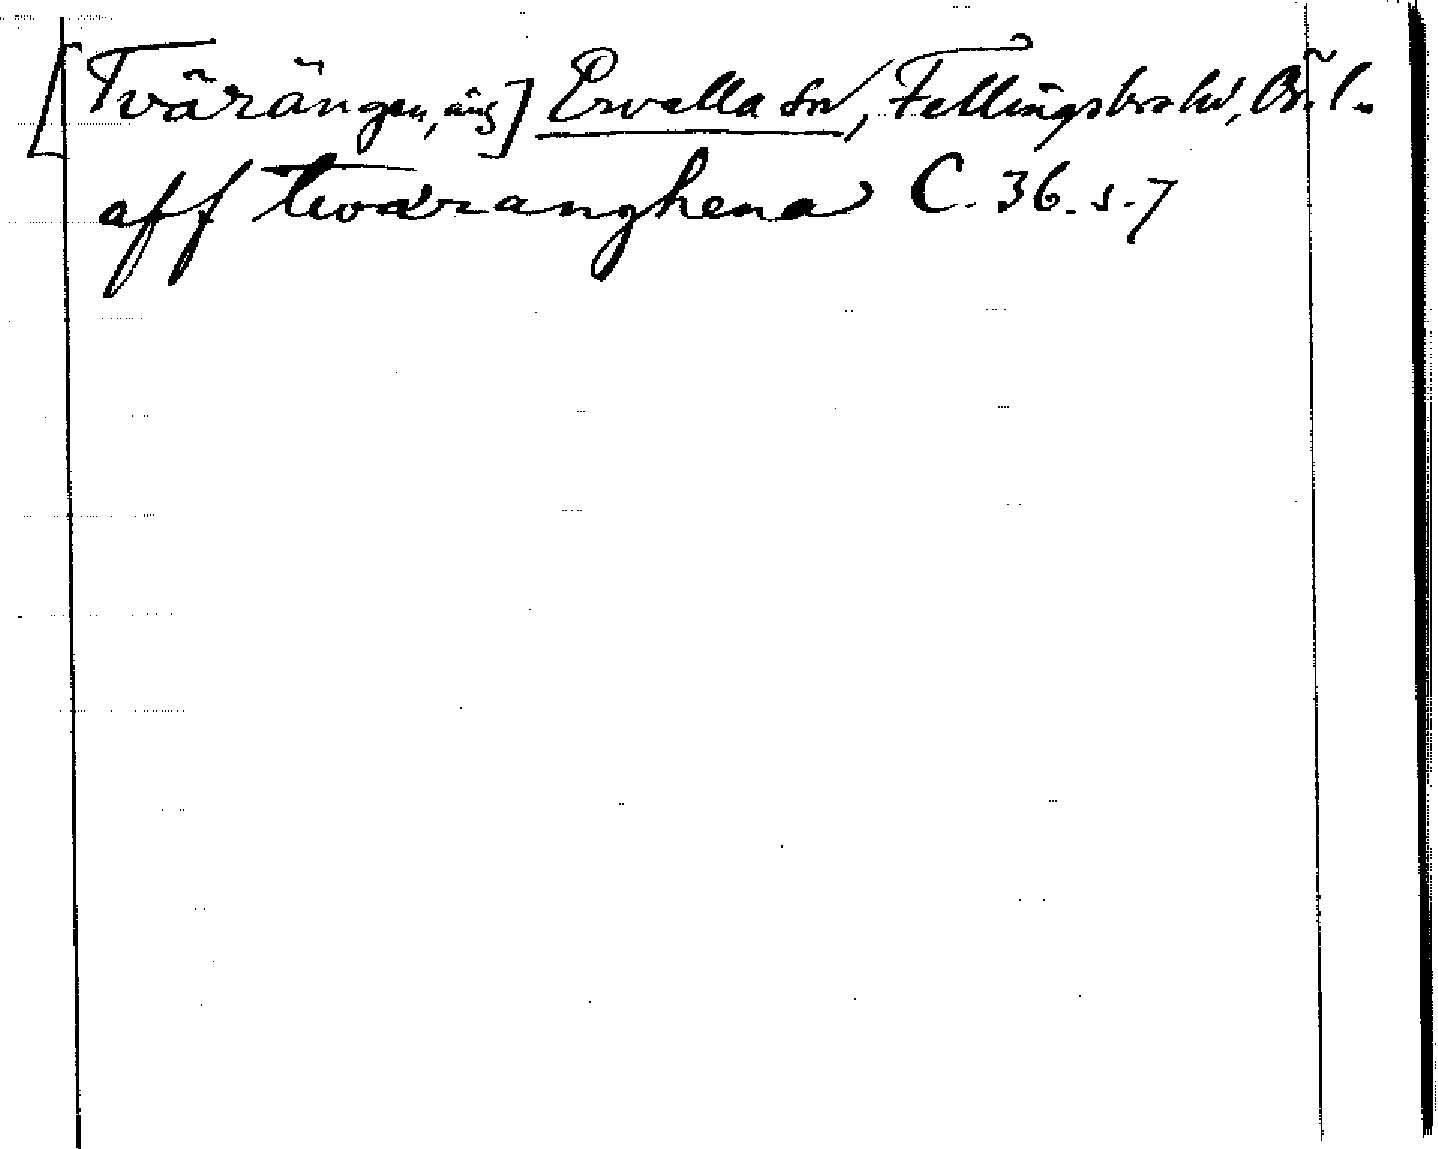 [Tvärängen, äng] Ervalla sn, Fellingsbro hd, Ör. l.
aff twäranghena C. 36. s. 7